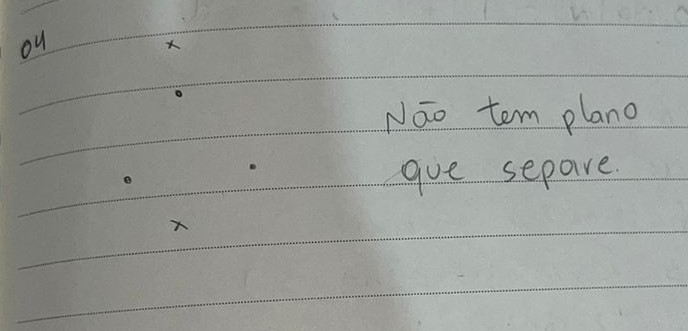 04
Não tem plano
que separe.